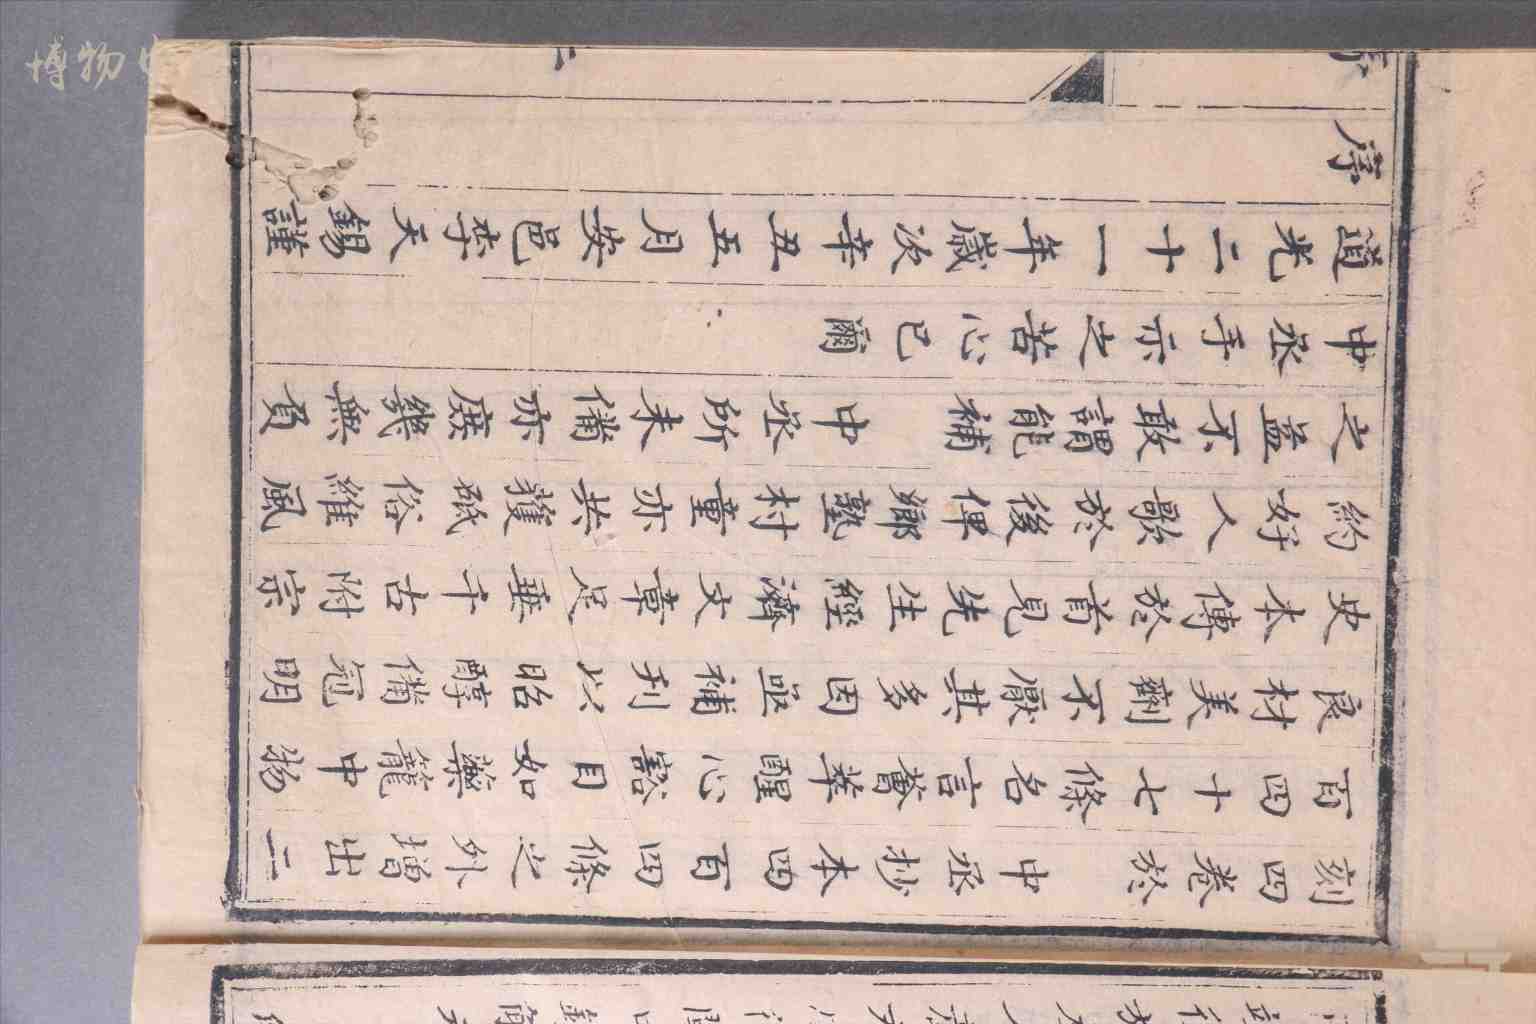 刻四卷於　中丞抄本四百四條之外增出二
百四十七條名言薈萃醒心豁目如藥籠中物
良材美劑不厭其多因亟補刊以昭醇備冠明
史本傳於首見先生經濟文章足垂千古附宗
約好人歌於後俾鄉塾村童亦共獲砥俗維風
之益不敢謂能補　中丞所未備亦庶幾無負
中丞手示之苦心已爾
道光二十一年歲次辛丑五月安邑李天錫謹
序
博物